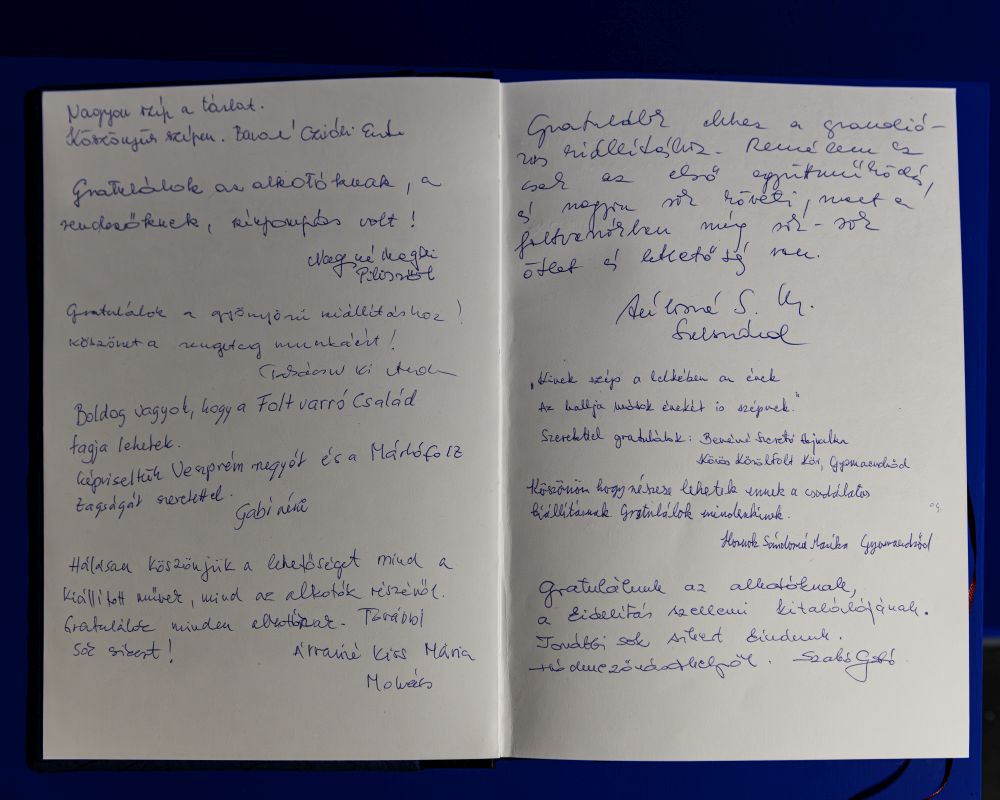 Nagyon szép a tárlat.
Köszönjük szépen.
Gratulálok az alkotóknak, a
rendezőknek, színpompás volt!
Nagyné Magdi
Gratulálok a gyönyörű kiállításhoz!
köszönet a rengeteg munkáért!
Boldog vagyok, hogy a Foltvarró Család
tagja lehetek.
képviseltük Veszprém megyét és a Márkófolz
tagságát szeretettel.
Gabi néni
Hálásan köszönjük a lehetőséget mind a
kiállított művek, mind az alkotók részéről.
Gratulálok minden alkotónak. További
sok sikert! Kiss Mária
Gratulálok ehhez a grandió-
zus kiállításhoz. Remélem ez
csak az első együttműködés,
és nagyon sok követi, mert a
foltvarrásban még sok-sok
ötlet és lehetőség van.
S.
"Kinek szép a lelkében az ének
Az hallja mások énekét is szépnek."
Szeretettel gratulálok: Hajnalka
Körös Körül Folt Kör, Gyomaendrőd
Köszönöm hogy részese lehetek ennek a csodálatos
kiállításnak Gratulálok mindenkinek.
Hornok Sándorné Marika Gyomaendrőd
Gratulálunk az alkotóknak,
a kiállítás szellemi kitalálójának.
További sok sikert kívánunk.
Hódmezővásárhelyről. Szabó